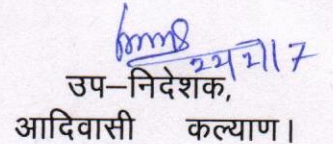 22/2/17
उप–निदेशक,
आदिवासी कल्याण।